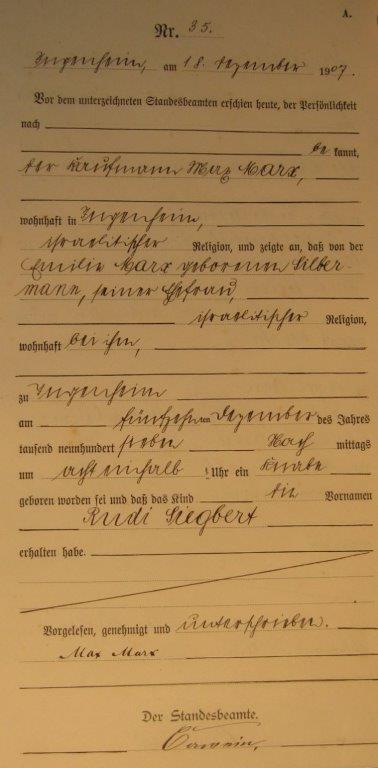 A.
Nr. 35.
Ingenheim, am 18. Dezember 1907.
Vor dem unterzeichneten Standesbeamten erschien heute, der Persönlichkeit
nach
be kannt,
der Kaufmann Max Marx,
wohnhaft in Ingenheim,
israelitischer Religion, und zeigte an, daß von der
Emilie Marx geborenen Silber-
mann, seiner Ehefrau,
israelitischer Religion,
wohnhaft bei ihm,
zu Ingenheim
am fünfzehnten Dezember des Jahres
tausend neunhundert sieben Nach mittags
um acht einhalb Uhr ein Knabe
geboren worden sei und daß das Kind die Vornamen
Rudi Siegbert
erhalten habe.
Vorgelesen, genehmigt und unterschrieben.
Max Marx
Der Standesbeamte.